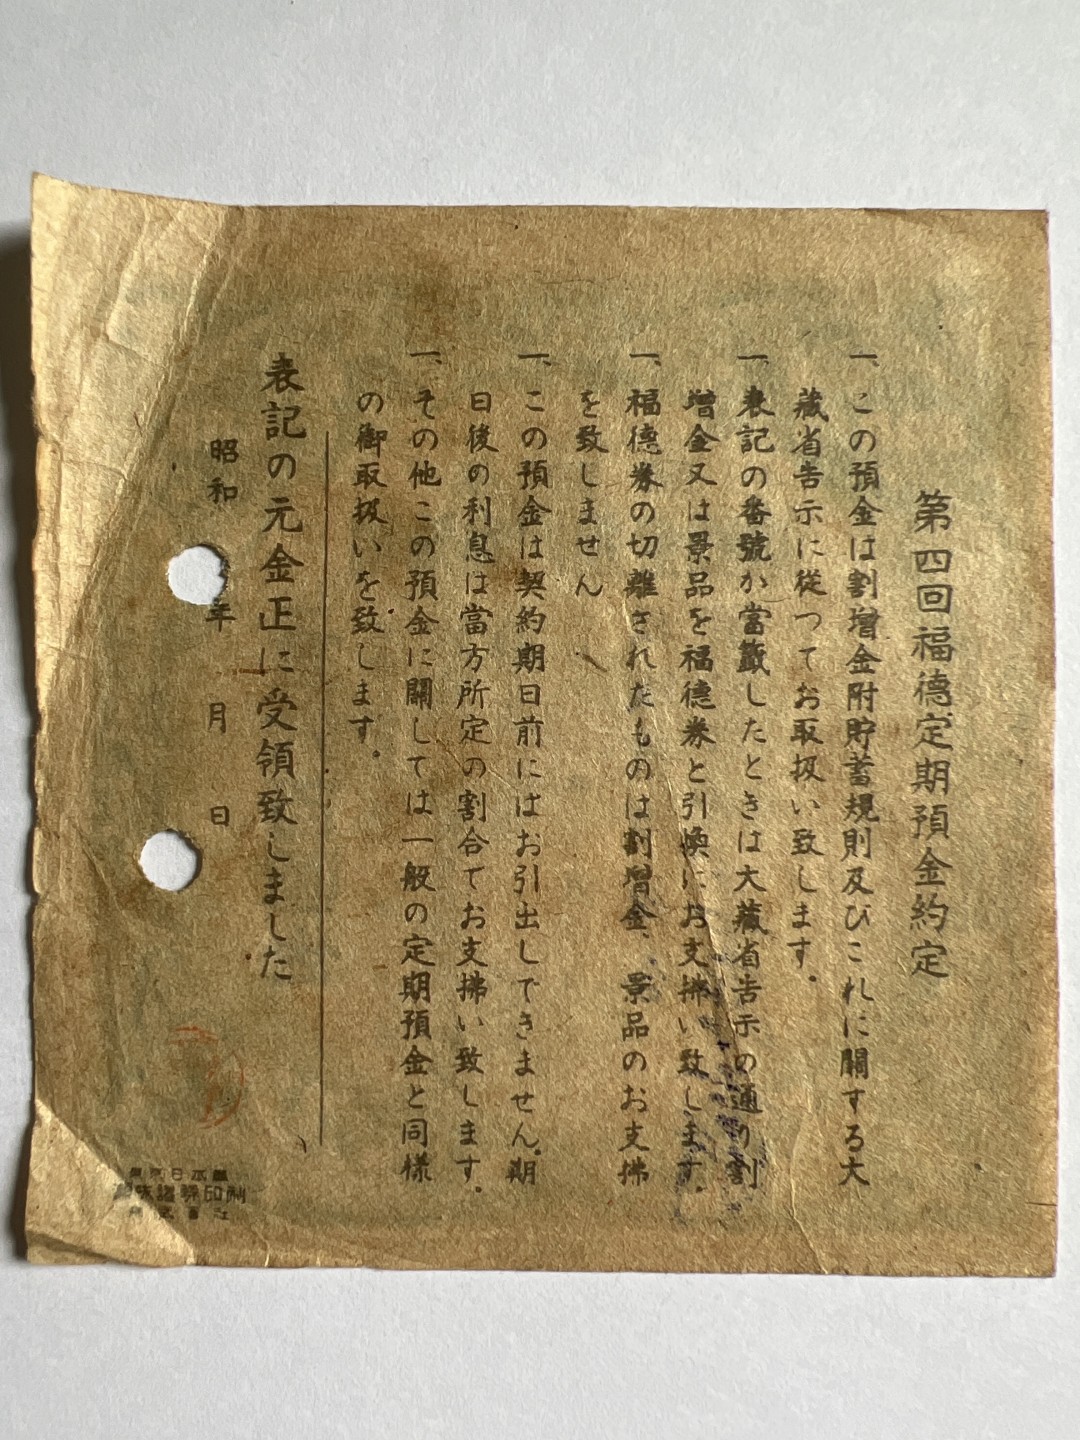 第四回福徳定期預金約定
一、この預金は割増金附貯蓄規則及びこれに關する大
藏省告示に従つてお取扱い致します。
一、表記の番號が當籤したときは大藏省告示の通り割
増金又は景品を福徳券と引換にお支拂い致します。
一、福徳券の切離されたものは割増金、景品のお支拂
を致しません
一、この預金は契約期日前にはお引出しできません。期
日後の利息は當方所定の割合でお支拂い致します。
一、その他この預金に關しては一般の定期預金と同様
の御取扱いを致します。
表記の元金正に受領致しました
昭和 年 月 日
印刷